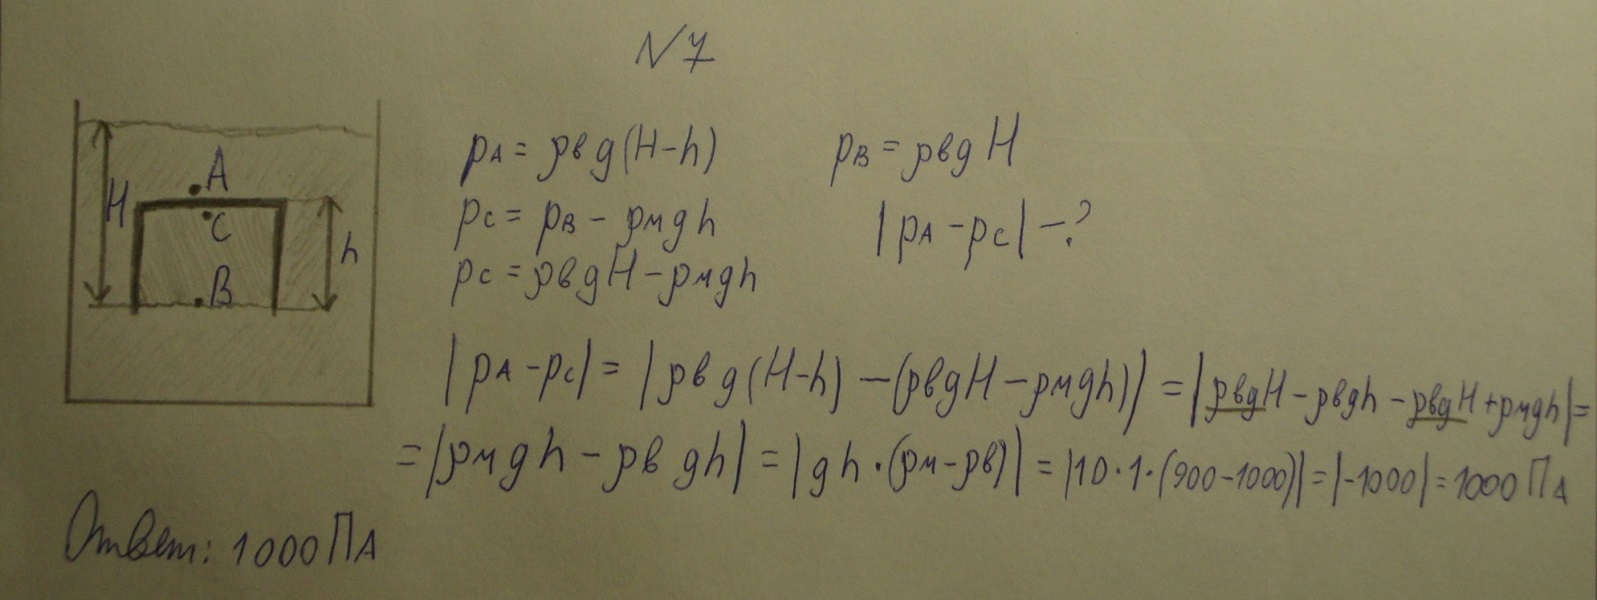 N7
H
A
C
B
h
pA = ρвg(H-h)
pB = ρвgH
pC = pB - ρмgh
|pA - pC| - ?
pC = ρвgH - ρмgh
|pA - pC| = |ρвg(H-h) - (ρвgH - ρмgh)| = |ρвgH - ρвgh - ρвgH + ρмgh| =
= |ρмgh - ρвgh| = |gh·(ρм-ρв)| = |10·1·(900-1000)| = |-1000| = 1000 ПА
Ответ: 1000 ПА